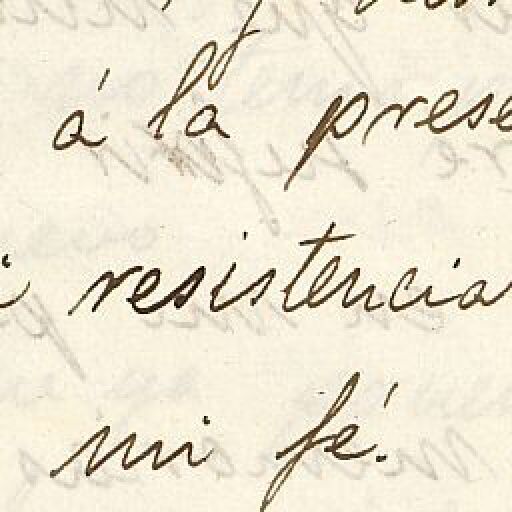 á la prese
resistencia
mi fé.